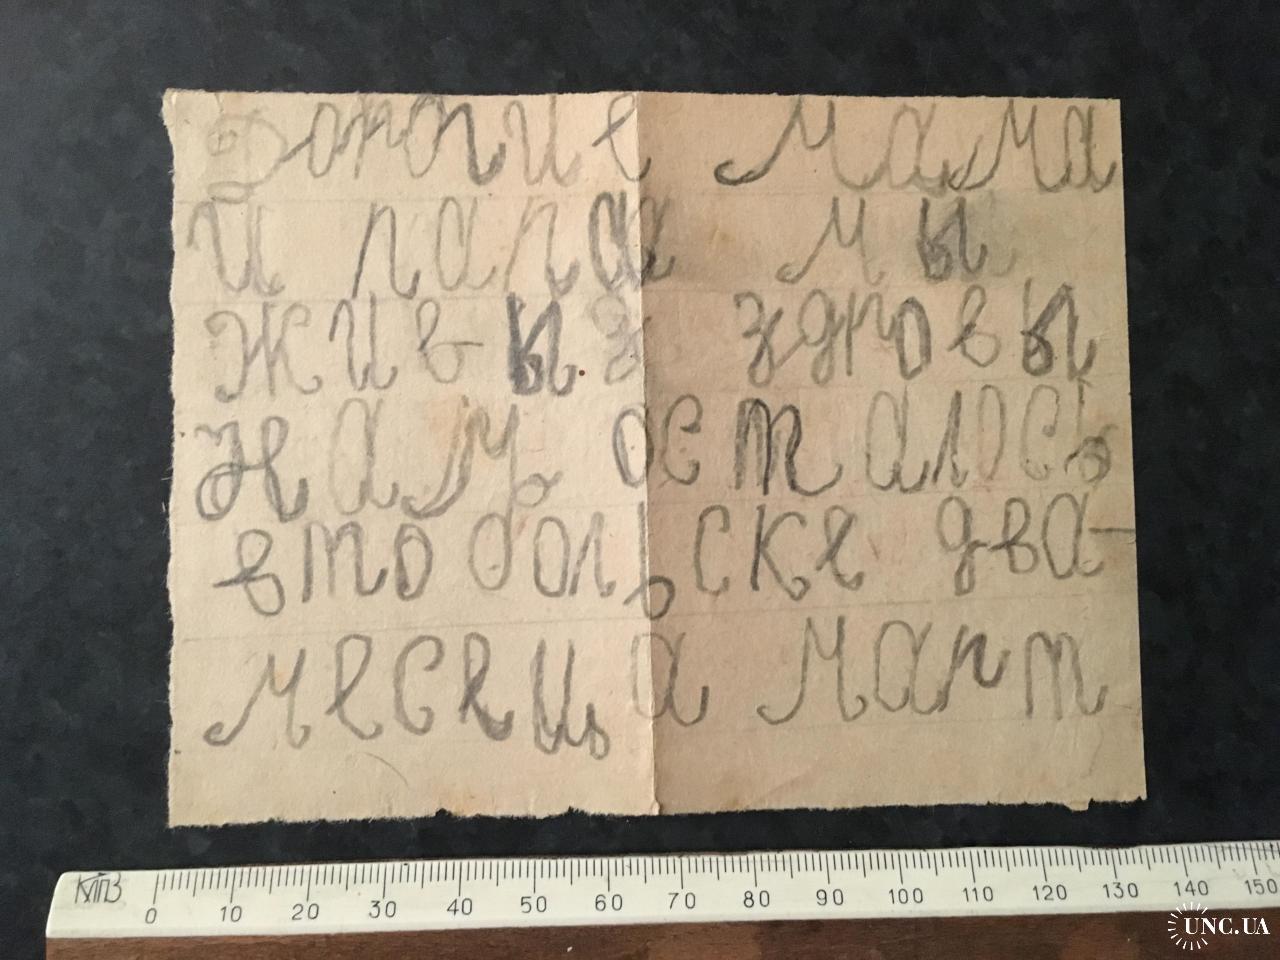 Доргие Мама
и папа мы
живы здровы
нам осталось
втобольске два-
месеца март
КПВЗ
0 10 20 30 40 50 60 70 80 90 100 110 120 130 140 150
UNC.UA